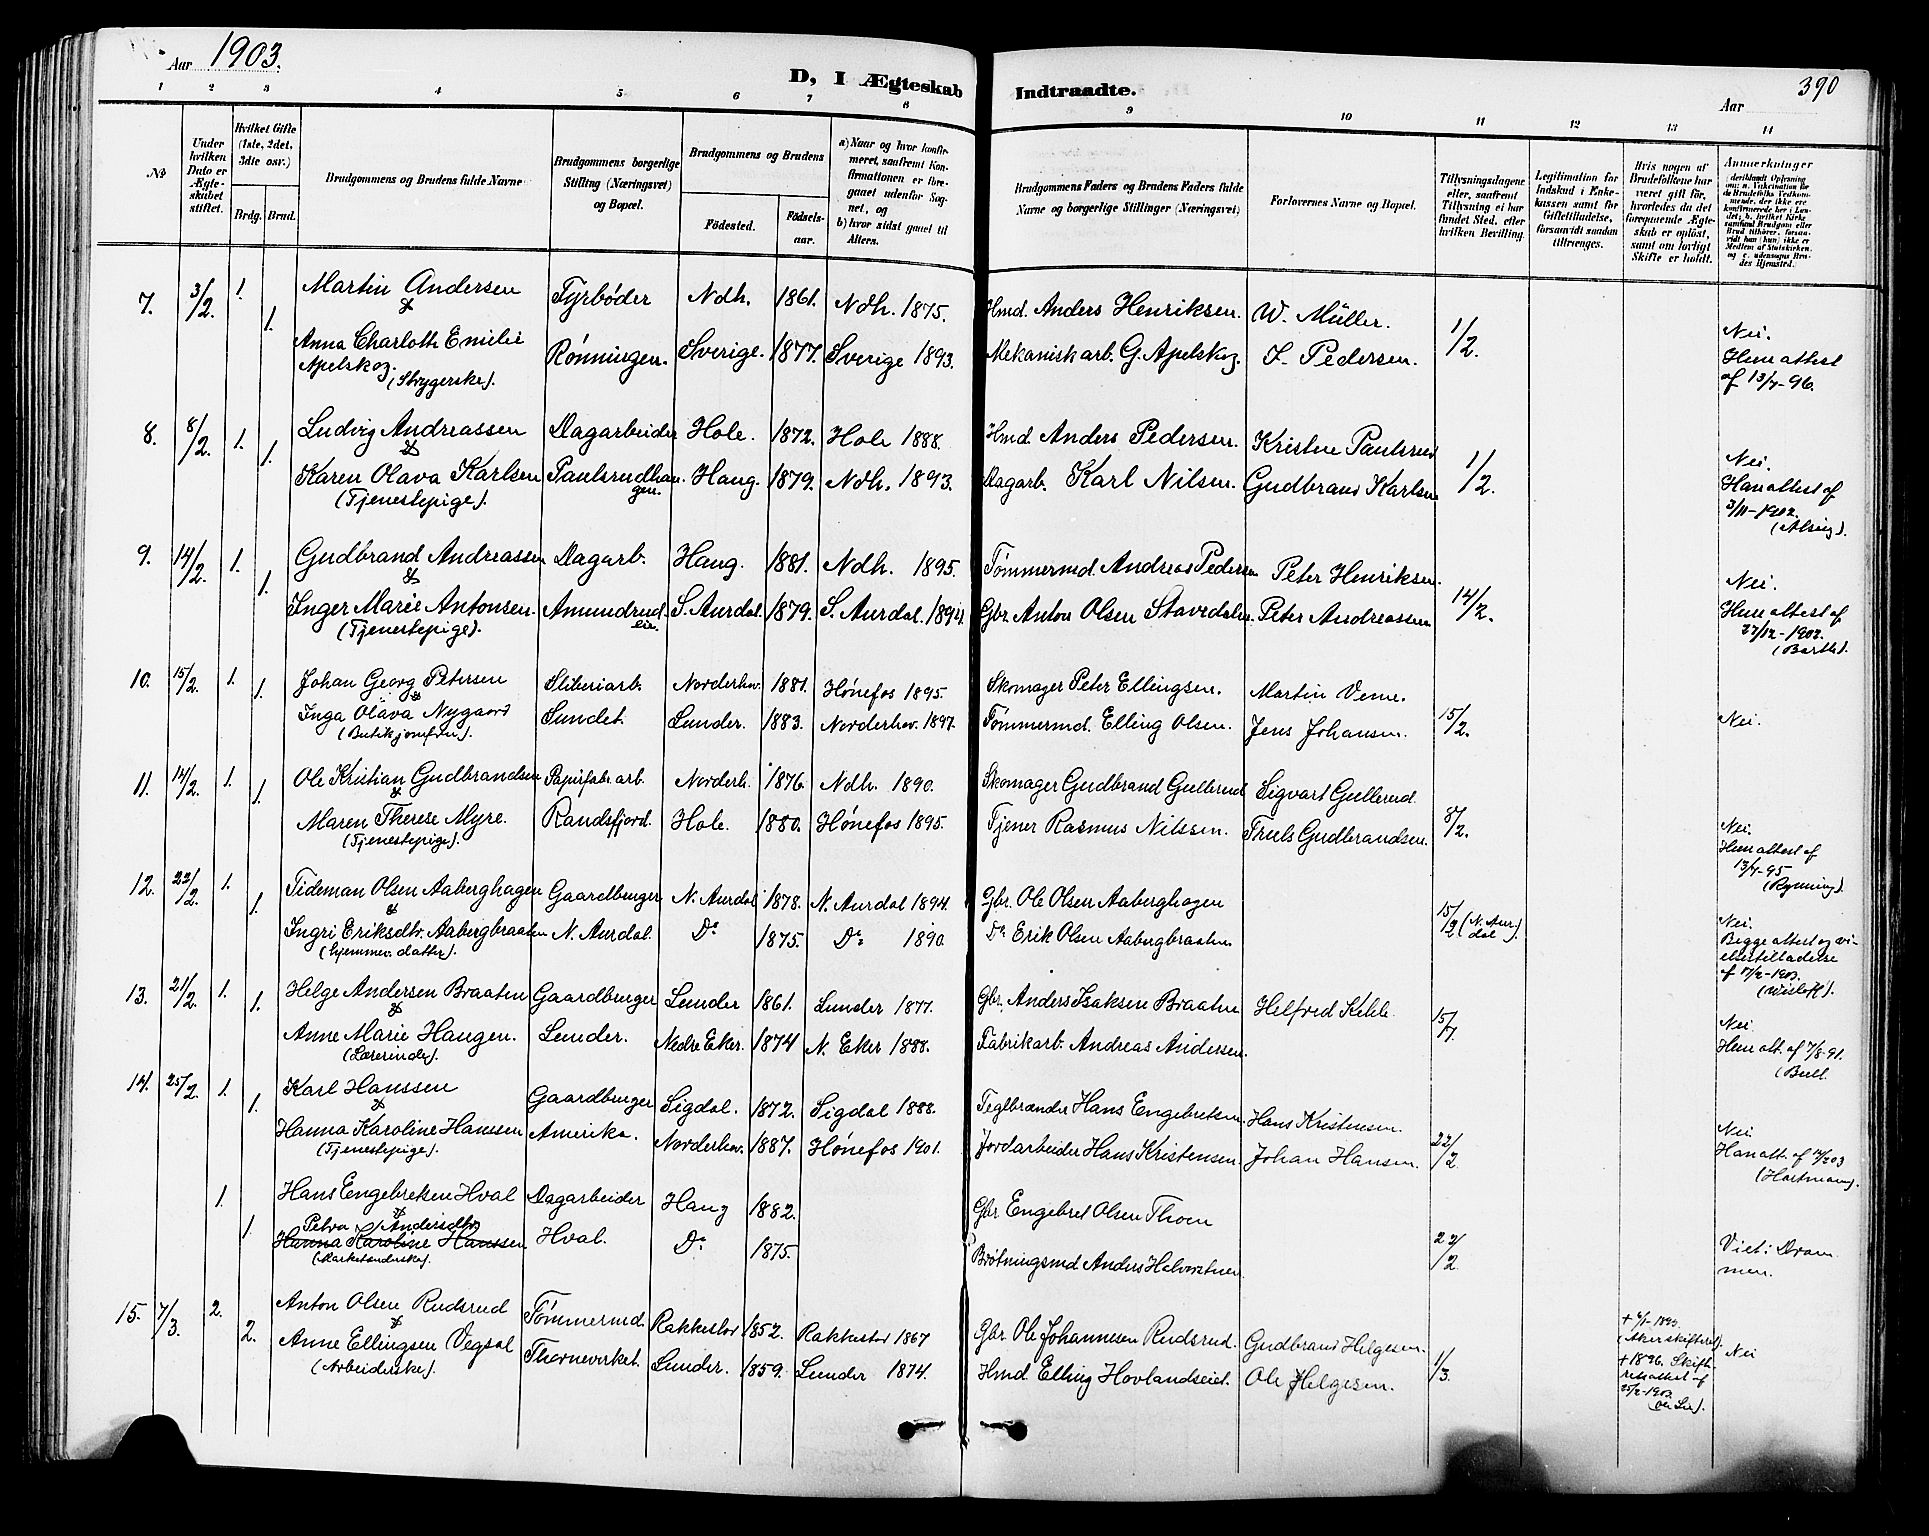 Aar 1903.
D, I Ægteskab Indtraadte.
Aar 390
1 2 3 4 5 6 7 8 9 10 11 12 13 14
No
Under hvilken Dato er Ægteskabet stiftet.
Hvilket Gifte (1ste, 2det, 3die osv.)
Brdg. Brud.
Brudgommens og Brudens fulde Navne
Brudgommens borgerlige Stilling (Næringsvei) og Bopæl.
Brudgommens og Brudens
Fødested. Fødselsaar.
a) Naar og hvor konfirmeret, saafremt Konfirmationen er foregaaet udenfor Sognet, og
b) hvor sidst gaaet til Alters.
Brudgommens Faders og Brudens Faders fulde Navne og borgerlige Stillinger (Næringsvei)
Forlovernes Navne og Bopæl.
Tillysningsdagene eller, saafremt Tillysning ei har fundet Sted, efter hvilken Bevilling.
Legitimation for Indskud i Enkekassen samt for Giftetilladelse, forsaavidt saadan tiltrænges.
Hvis nogen af Brudefolkene har været gift før, hvorledes du det foregaaende Ægteskab er opløst, samt om lovligt Skifte er holdt.
Anmerkninger
7. 3/2 1. Martin Andersen Fyrbøder Ndh. 1861. Ndh. 1875. Hmd. Anders Henriksen. W. Müller.
&
1. Anna Charlotte Emilie Rønningen. Sverige. 1877. Sverige 1893. Mekanisk arb. G. Apelskog. J. Pedersen. 1/2. Nei.
Apelskog. Hun attest
(Strygerske). af 13/7-96.
8. 8/2 1. Ludvig Andreassen Dagarbeider Hole. 1872. Hole 1888. Hmd. Anders Pedersen. Kristen Paulsrud
&
1. Karen Olava Karlsen Paulsrudhaugen. Haug. 1879. Ndh. 1893. Dagarb. Karl Nilsen. Gudbrand Karlsen 1/2. Nei.
(Tjenestepige). Han attest af
3/11-1902.
9. 14/2. 1. Gudbrand Andreassen Dagarb. Haug. 1881. Ndh. 1895. Tømmermd. Andreas Pedersen Peter Henriksen.
&
1. Inger Marie Antonsen Amundrud eie. S. Aurdal. 1879. S. Aurdal. 1894. Gbr. Anton Olsen Stavedalen. Peter Andreassen 14/2. Nei.
(Tjenestepige). Hun attest af
27/12-1902.
10. 15/2. 1. Johan Georg Petersen Sliberiarb. Norderhov. 1881. Hønefos 1895. Skomager Peter Ellingsen. Martin Veme.
&
1. Inga Olava Nygaard Sundet. Lunder. 1883. Norderhov. 1897. Tømmermd. Elling Olsen. Jens Johansen. 15/2. Nei.
(Butikjomfru).
11. 14/2. 1. Ole Kristian Gudbrandsen Papirfabr. arb. Norderh. 1876. Ndh. 1890. Skomager Gudbrand Gullerud Sigvart Gullerud.
&
1. Maren Therese Myre. Randsfjord. Hole. 1880. Hønefos 1895. Tjener Rasmus Nilssen. Truls Gudbrandsen. 8/2. Nei.
(Tjenestepige). Hun attest af
13/7-95
(Rynning).
12. 22/2. 1. Tideman Olsen Aaberghagen Gaardbruger N. Aurdal 1878. N. Aurdal 1894. Gbr. Ole Olsen Aaberghagen
&
1. Ingri Eriksdtr. Aabergbraaten N. Aurdal. Do 1875. Do 1890. Do Erik Olsen Aabergbraaten 15/2 (N. Aurdal). Nei.
(hjemmev. datter). Begge attest og vielsestilladelse
af 17/2-1903.
(Wisløff).
13. 21/2. 1. Helge Andersen Braaten Gaardbruger Lunder 1861. Lunder 1877. Gbr. Anders Isaksen Braaten Helfred Kihle.
&
1. Anne Marie Haugen. Lunder. Nedre Eker. 1874 N. Eker 1888. Fabrikarb. Andreas Andersen. 15/ Nei
(Lærerinde). Hun att. af 7/8-91.
(Bull.
14. 25/2. 1. Karl Hanssen Gaardbruger Sigdal. 1872. Sigdal 1888. Teglbrænder Hans Engebretsen Hans Kristensen.
&
1. Hanna Karoline Hanssen Amerika. Norderhov. 1887. Hønefos 1901. Jordarbeider Hans Kristensen. Johan Hansen. 22/2. Nei
(Tjenestepige). Han att. af
(Hartmann).
1. Hans Engebretsen Hval Dagarbeider Haug 1882. Gbr Engebret Olsen Thoen
&
1. Petra Andersdtr Hval. Do 1875. Brøtningsmd Anders Halvorsen 22/2 Viet i Drammen.
Hanna Karoline Hanssen
(Marketenderske).
15. 7/3. 2. Anton Olsen Rudsrud Tømmermd. Rakkestad 1852. Rakkestad 1867 Gbr. Ole Johannesen Rudsrud. Gudbrand Helgesen.
&
2. Anne Ellingsen Vegsal Thornevirket. Lunder. 1859. Lunder 1874. Hmd Elling Hovlandseiet. Ole Helgesen. 1/3. Nei
(Arbeiderske). + 1896. Skifteretsattest af
25/2-1903.